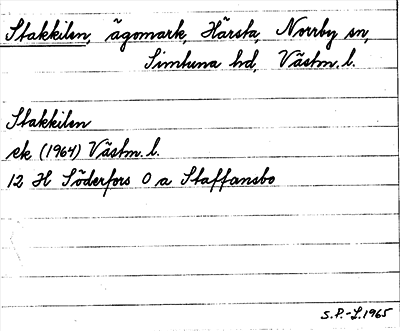 Stakkilen, ägomark, Härsta, Norrby sn,
Simtuna hd, Västm. l.
Stakkilen
ek (1964) Västm. l.
12 H Söderfors 0 a Staffansbo
S.P.-L. 1965